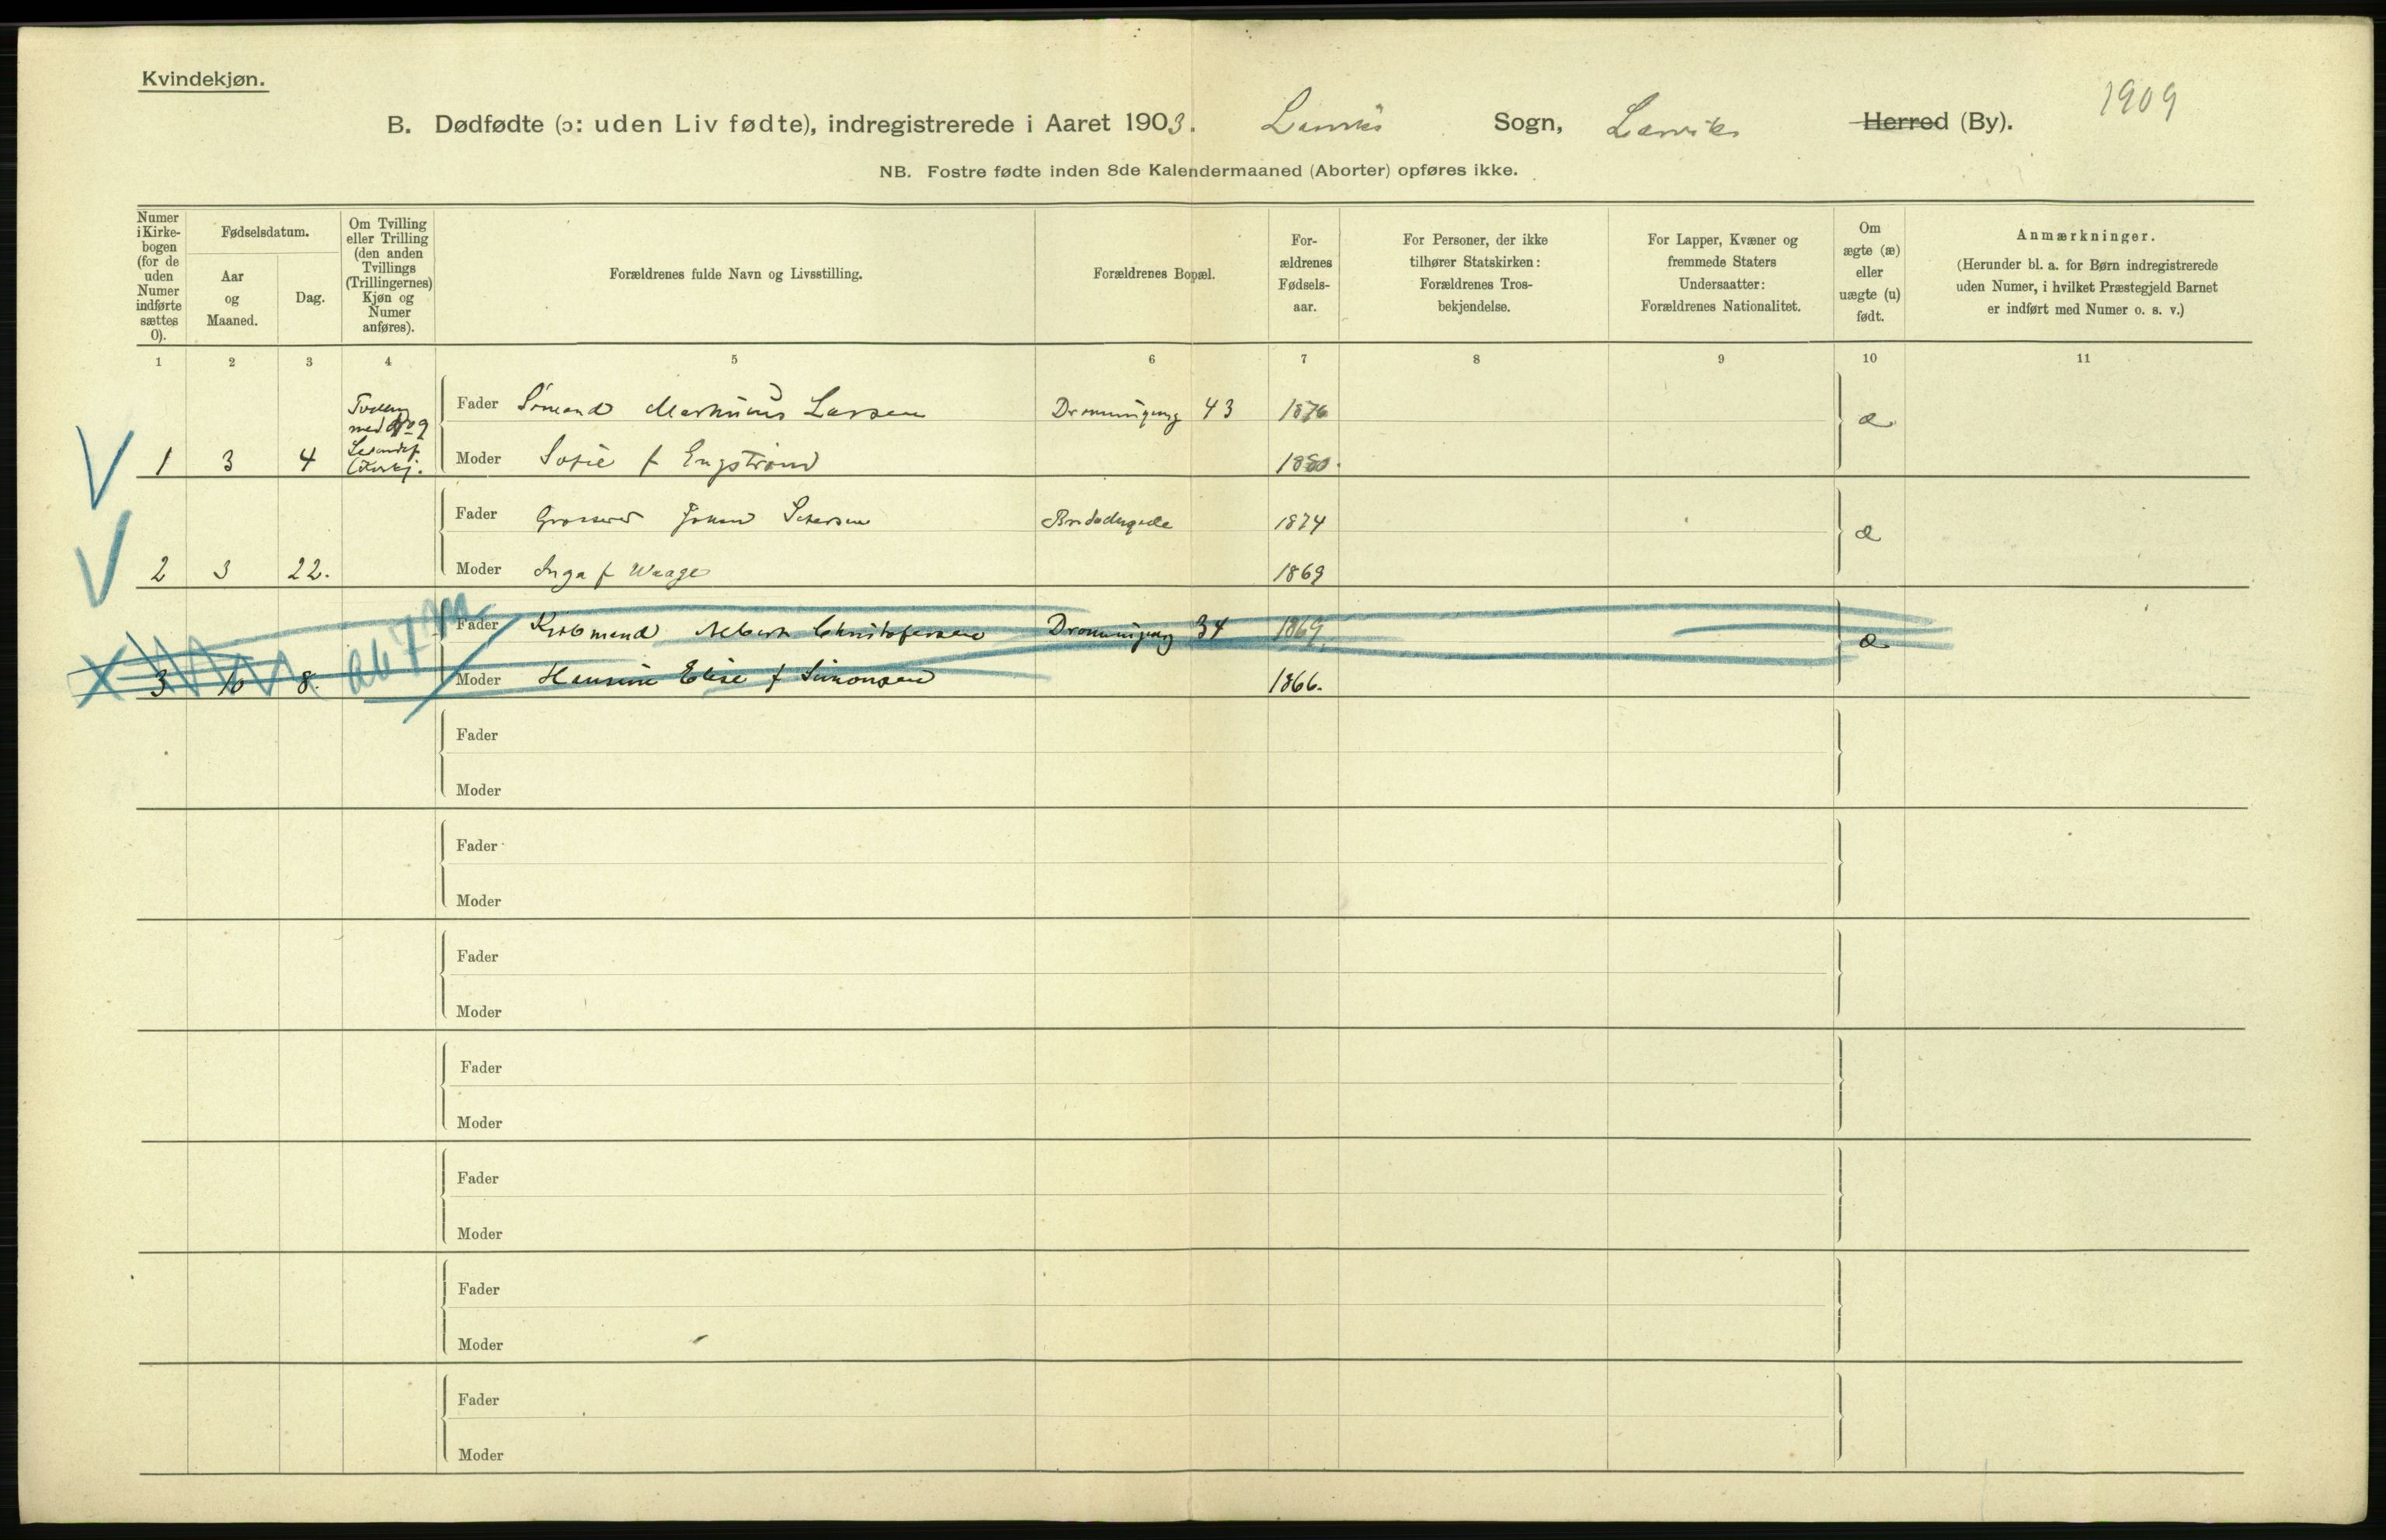 Kvindekjøn.
1909
B. Dødfødte (ɔ: uden Liv fødte), indregistrerede i Aaret 1903. Larviks Sogn, Larviks Herred (By).
NB. Fostre fødte inden 8de Kalendermaaned (Aborter) opføres ikke.
Numer
i Kirke-
bogen
(for de
uden
Numer
indførte
sættes
0).
Fødselsdatum.
Aar
og
Maaned.
Dag.
Om Tvilling
eller Trilling
(den anden
Tvillings
(Trillingernes)
Kjøn og
Numer
anføres).
Forældrenes fulde Navn og Livsstilling.
Forældrenes Bopæl.
For-
ældrenes
Fødsels-
aar.
For Personer, der ikke
tilhører Statskirken:
Forældrenes Tros-
bekjendelse.
For Lapper, Kvæner og
fremmede Staters
Undersaatter:
Forældrenes Nationalitet.
Om
ægte (æ)
eller
uægte (u)
født.
Anmærkninger.
(Herunder bl. a. for Børn indregistrerede
uden Numer, i hvilket Præstegjeld Barnet
er indført med Numer o. s. v.)
1 2 3 4 5 6 7 8 9 10 11
Tvilling
med No 9
Levendef.
Fader Sømand Larsen Dronningensg 43 1876 æ
1 3 4 Moder Sofie f Engstrøm 1880.
Fader Grosserer Johan 1874 æ
2 3 22. Moder Inga f Waage 1869
Fader Kjøbmand Albert Christofersen Dronningensg 34 1869. æ
3 10 8. ab 7 m Moder Hansine Elise f Simonsen 1866.
Fader
Moder
Fader
Moder
Fader
Moder
Fader
Moder
Fader
Moder
Fader
Moder
Fader
Moder